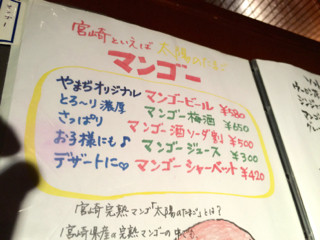 宮崎といえば 太陽のたまご
マンゴー
やまぢオリジナル マンゴービール ¥580
とろ〜り濃厚 マンゴー梅酒 ¥650
さっぱり マンゴー酒ソーダ割 ¥500
お子様にも♪ マンゴージュース ¥300
デザートに♡ マンゴーシャーベット ¥420
宮崎完熟マンゴー「太陽のたまご」とは?
宮崎県産の完熟マンゴーの中でも